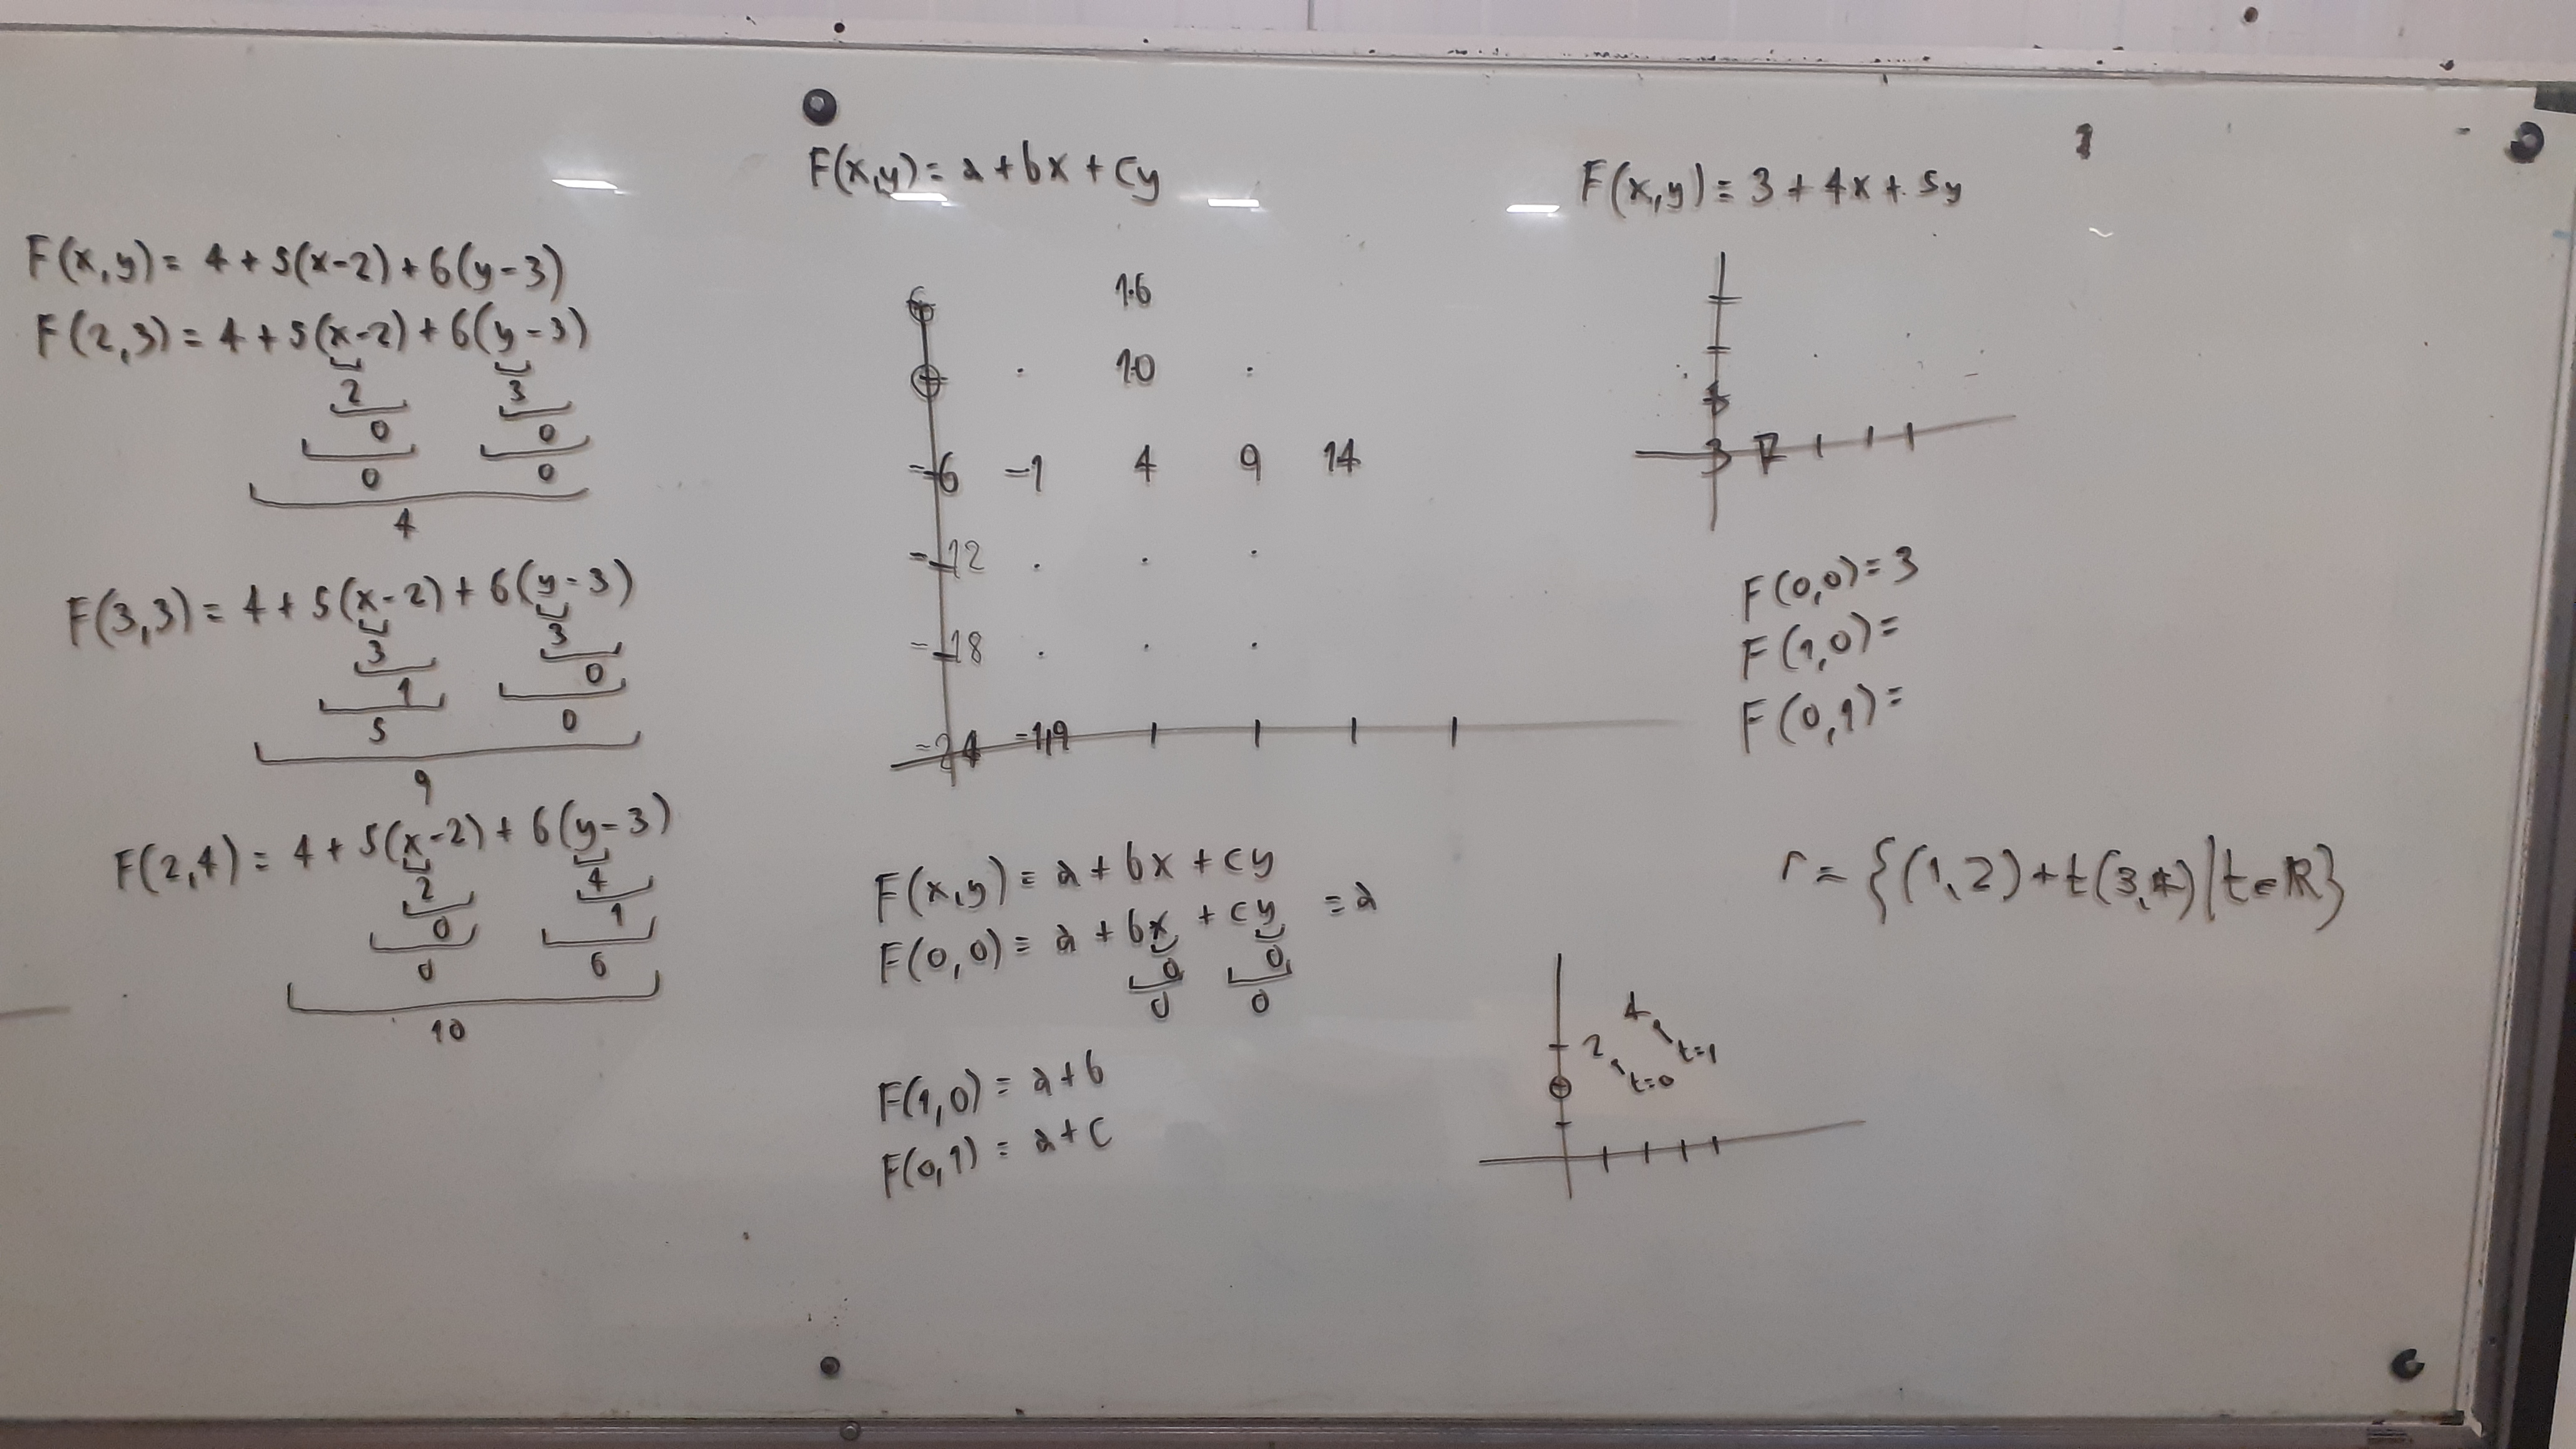 F(x,y) = 4 + 5(x-2) + 6(y-3)
F(2,3) = 4 + 5(x-2) + 6(y-3)
2 3
0 0
0 0
4
F(3,3) = 4 + 5(x-2) + 6(y-3)
3 3
1 0
5 0
9
F(2,4) = 4 + 5(x-2) + 6(y-3)
2 4
0 1
0 6
10
F(x,y) = a + bx + cy
16
10
-6 -1 4 9 14
-12
-18
F(x,y) = a + bx + cy
F(0,0) = a + bx + cy = a
0 0
0 0
F(1,0) = a + b
F(0,1) = a + c
F(x,y) = 3 + 4x + 5y
3 7
F(0,0) = 3
F(1,0) =
F(0,1) =
r = {(1,2) + t(3,4) | t ∈ ℝ}
4
2 t=1
t=0